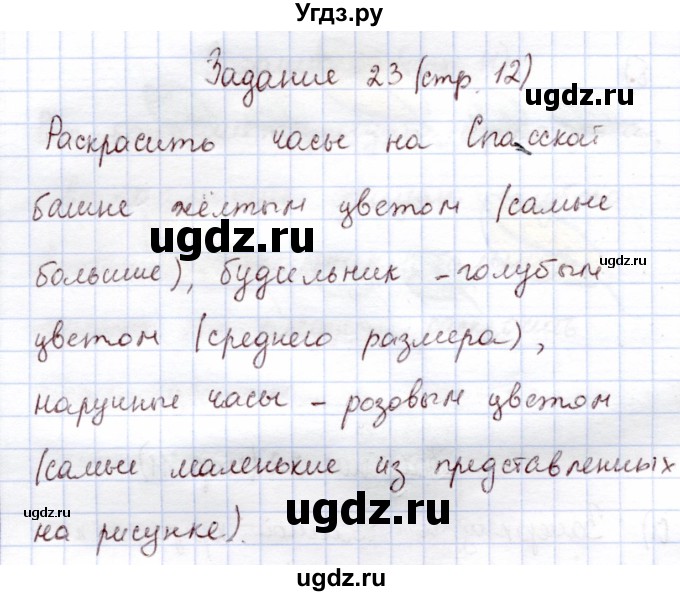 Угдз.ру
Задание 23 (стр. 12)
ugdz.ru
Раскрасить часы на Спасской
башне жёлтым цветом (самые
ugdz.ru
ugdz.ru
большие), будильник – голубым
цветом (среднего размера),
наручные часы – розовым цветом
(самые маленькие из представленных
ugdz.ru
ugdz.ru
на рисунке).
ugdz.ru